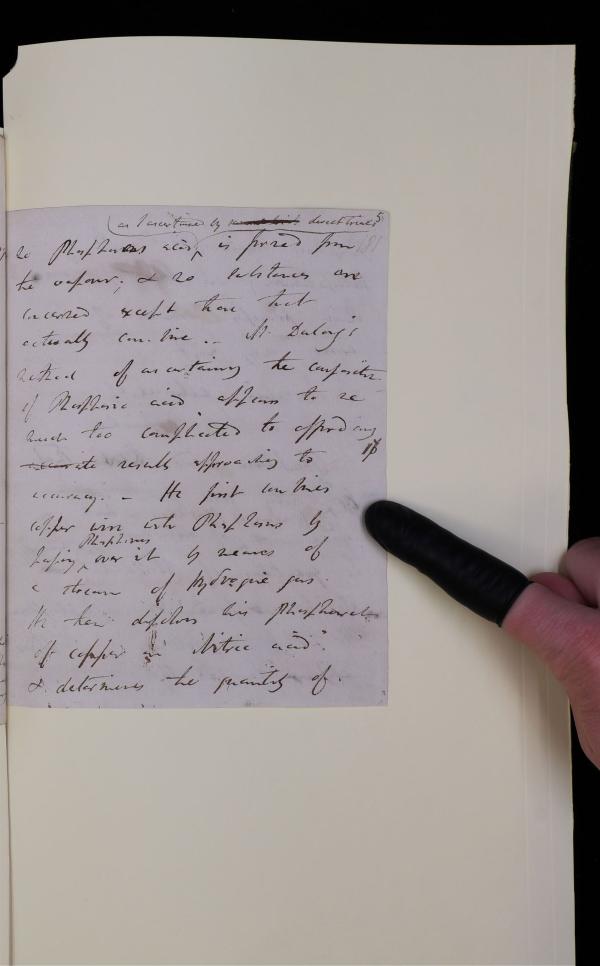 as I ascertained by direct trials 5
no Phosphorous acid is formed from 181
the vapour; & no substances are
concerned except those that
actually combine. _ M. Dulong's
method of ascertaining the composition
of Phosphoric acid appears to me
much too complicated to afford any
results approaching to
accuracy. _ He first combines
copper wire with Phosphorus by
Phosphorus
passing over it by means of
a stream of Hydrogene gas.
He then dissolves his Phosphuret
of copper in Nitric acid
& determines the quantity of